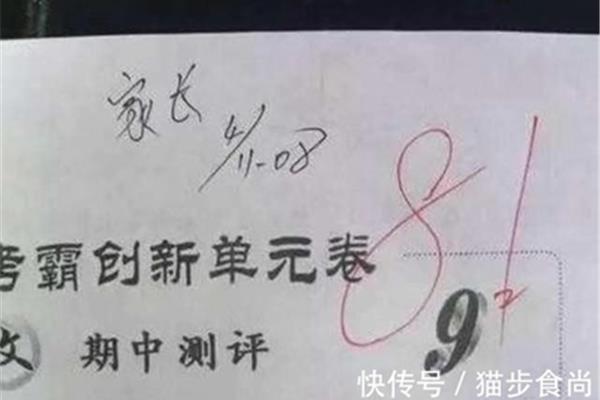 家长
11.08
81
考霸创新单元卷
9
期中测评
快传号 / 猫步食尚